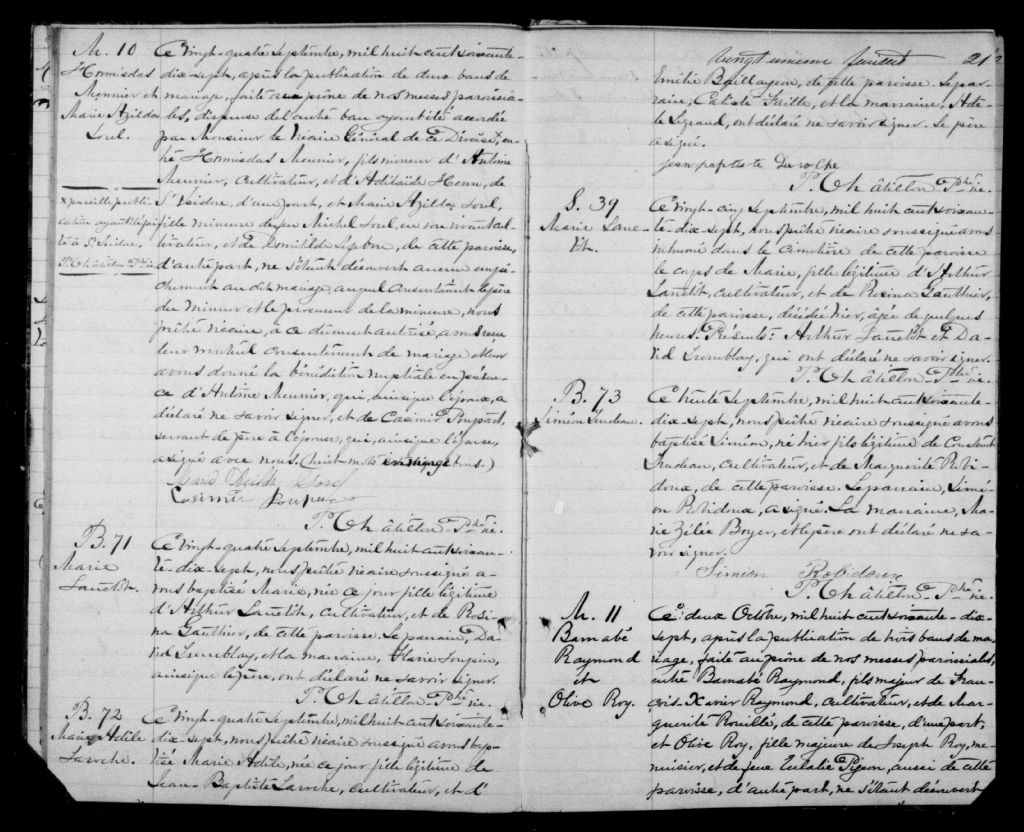 M. 10
Hormisdas
Monnier et
Marie Azilda
Sorel.
Ce vingt-quatre Septembre, mil huit cent soixante-
dix-sept, après la publication de deux bans de
mariage, faite au prône de nos messes paroissia-
les, dispense de l'autre ban ayant été accordée
par Monsieur le Vicaire Général de ce Diocèse, en-
tre Hormisdas Meunier, fils mineur d'Antoine
Meunier, cultivateur, et d'Adélaïde Henn, de
St Isidore, d'une part, et Marie Azilda Sorel,
fille mineure de Michel Sorel, en son vivant cul-
tivateur, et de Domitilde Lefebre, de cette paroisse,
d'autre part, ne s'étant découvert aucun empê-
chement au dit mariage, auquel consentaient le père
du mineur et le procureur de la mineure, nous
prêtre vicaire, à ce dûment autorisé, avons reçu
leur mutuel consentement de mariage et leur
avons donné la bénédiction nuptiale en présen-
ce d'Antoine Meunier, qui, ainsi que l'époux, a
déclaré ne savoir signer, et de Casimir Poupart,
servant de père à l'épouse, qui, ainsi que l'épouse,
a signé avec nous. (huit mots en marge bons.)
x pareille publi-
cation ayant été fai-
te à St Isidore,
P. Châtillon Ptre vic.
Marie Sorel
Casimir Poupart
P. Châtillon Ptre vic.
B. 71
Marie
Lanctôt.
Ce vingt-quatre Septembre, mil huit cent soixan-
te-dix-sept, nous prêtre vicaire soussigné a-
vons baptisé Marie, née ce jour fille légitime
d'Arthur Lanctôt, cultivateur, et de Rosi-
na Gauthier, de cette paroisse. Le parrain, Da-
vid Tremblay, et la marraine, Marie
ainsi que le père, ont déclaré ne savoir signer.
P. Châtillon Ptre vic.
B. 72
Marie Adèle
Laroche.
Ce vingt-quatre Septembre, mil huit cent soixante-
dix-sept, nous prêtre vicaire soussigné avons bap-
tisé Marie Adèle, née ce jour fille légitime de
Jean-Baptiste Laroche, cultivateur, et d'
vingt unième feuillet 21
Emilie Baillargeon, de cette paroisse. Le par-
rain, Caliste Faille, et la marraine, Adè-
le Legrand, ont déclaré ne savoir signer. Le père
a signé.
jean paptiste Laroche
P. Châtillon Ptre vic.
S. 39
Marie Lanc-
tôt.
Ce vingt-cinq Septembre, mil huit cent soixan-
te-dix-sept, nous prêtre vicaire soussigné avons
inhumé dans le cimetière de cette paroisse
le corps de Marie, fille légitime d'Arthur
Lanctôt, cultivateur, et de Rosina Gauthier,
de cette paroisse, décédée hier, agée de quelques
heures. Présents: Arthur Lanctôt et Da-
vid Tremblay, qui ont déclaré ne savoir signer.
P. Châtillon Ptre vic.
B. 73
Siméon Trudeau.
Ce trente Septembre, mil huit cent soixante-
dix-sept, nous prêtre vicaire soussigné avons
baptisé Siméon, né hier fils légitime de Constant
Trudeau, cultivateur, et de Marguerite Robi-
doux, de cette paroisse. Le parrain, Simé-
on Robidoux, a signé. La marraine, Ma-
rie Zélée Boyer, et le père ont déclaré ne sa-
voir signer.
Siméon Robidoux
P. Châtillon Ptre vic.
M. 11
Barnabé
Raymond
et
Olive Roy.
Ce deux Octobre, mil huit cent soixante-dix-
sept, après la publication de trois bans de ma-
riage, faite au prône de nos messes paroissiales,
entre Barnabé Raymond, fils majeur de Fran-
çois-Xavier Raymond, cultivateur, et de Mar-
guerite Rouillé, de cette paroisse, d'une part,
et Olive Roy, fille majeure de Joseph Roy, me-
nuisier, et de feue Eulalie Pigeon, aussi de cette
paroisse, d'autre part, ne s'étant découvert